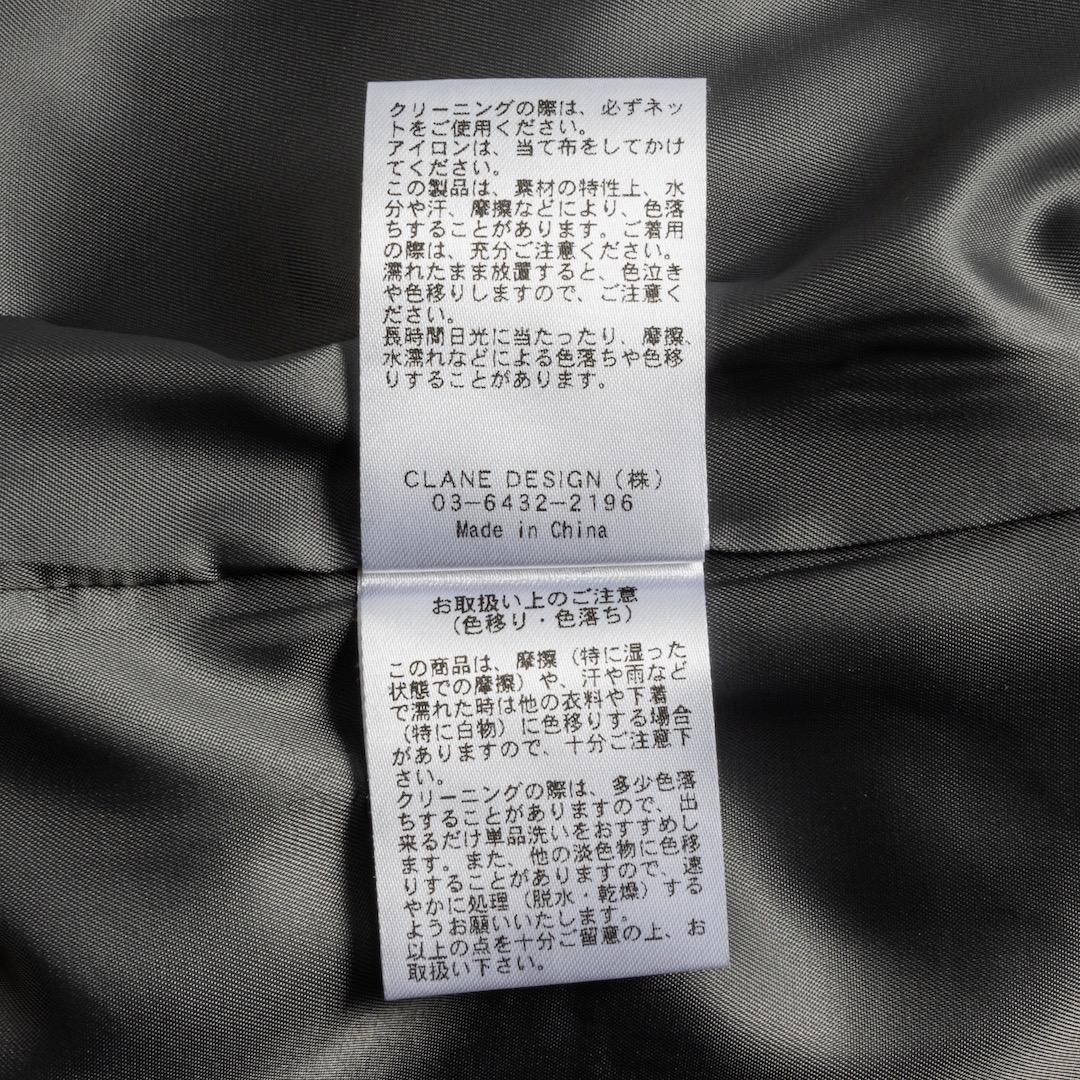 クリーニングの際は、必ずネッ
トをご使用ください。
アイロンは、当て布をしてかけ
てください。
この製品は、素材の特性上、水
分や汗、摩擦などにより、色落
ちすることがあります。ご着用
の際は、充分ご注意ください。
濡れたまま放置すると、色泣き
や色移りしますので、ご注意く
ださい。
長時間日光に当たったり、摩擦、
水濡れなどによる色落ちや色移
りすることがあります。
CLANE DESIGN（株）
03-6432-2196
Made in China
お取扱い上のご注意
（色移り・色落ち）
この商品は、摩擦（特に湿った
状態での摩擦）や、汗や雨など
で濡れた時は他の衣料や下着
（特に白物）に色移りする場合
がありますので、十分ご注意下
さい。
クリーニングの際は、多少色落
ちすることがありますので、出
来るだけ単品洗いをおすすめし
ます。また、他の淡色物に色移
りすることがありますので、速
やかに処理（脱水・乾燥）する
ようお願いいたします。
以上の点を十分ご留意の上、お
取扱い下さい。